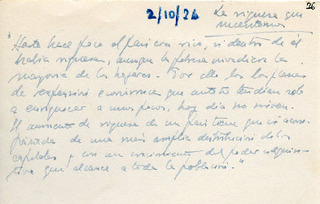 26
2/10/26
La riqueza que
necesitamos
"Hasta hace poco el país era rico, si dentro de él
había riqueza, aunque la pobreza invadiera la
mayoría de los hogares. Por ello los planes
de expansión económica que antaño tendían solo
a enriquecer a unos pocos, hoy día no sirven.
El aumento de riqueza de un país tiene que ir acom-
pañada de una más amplia distribución de los
capitales y con un crecimiento del poder adquisi-
tivo que alcance a toda la población."